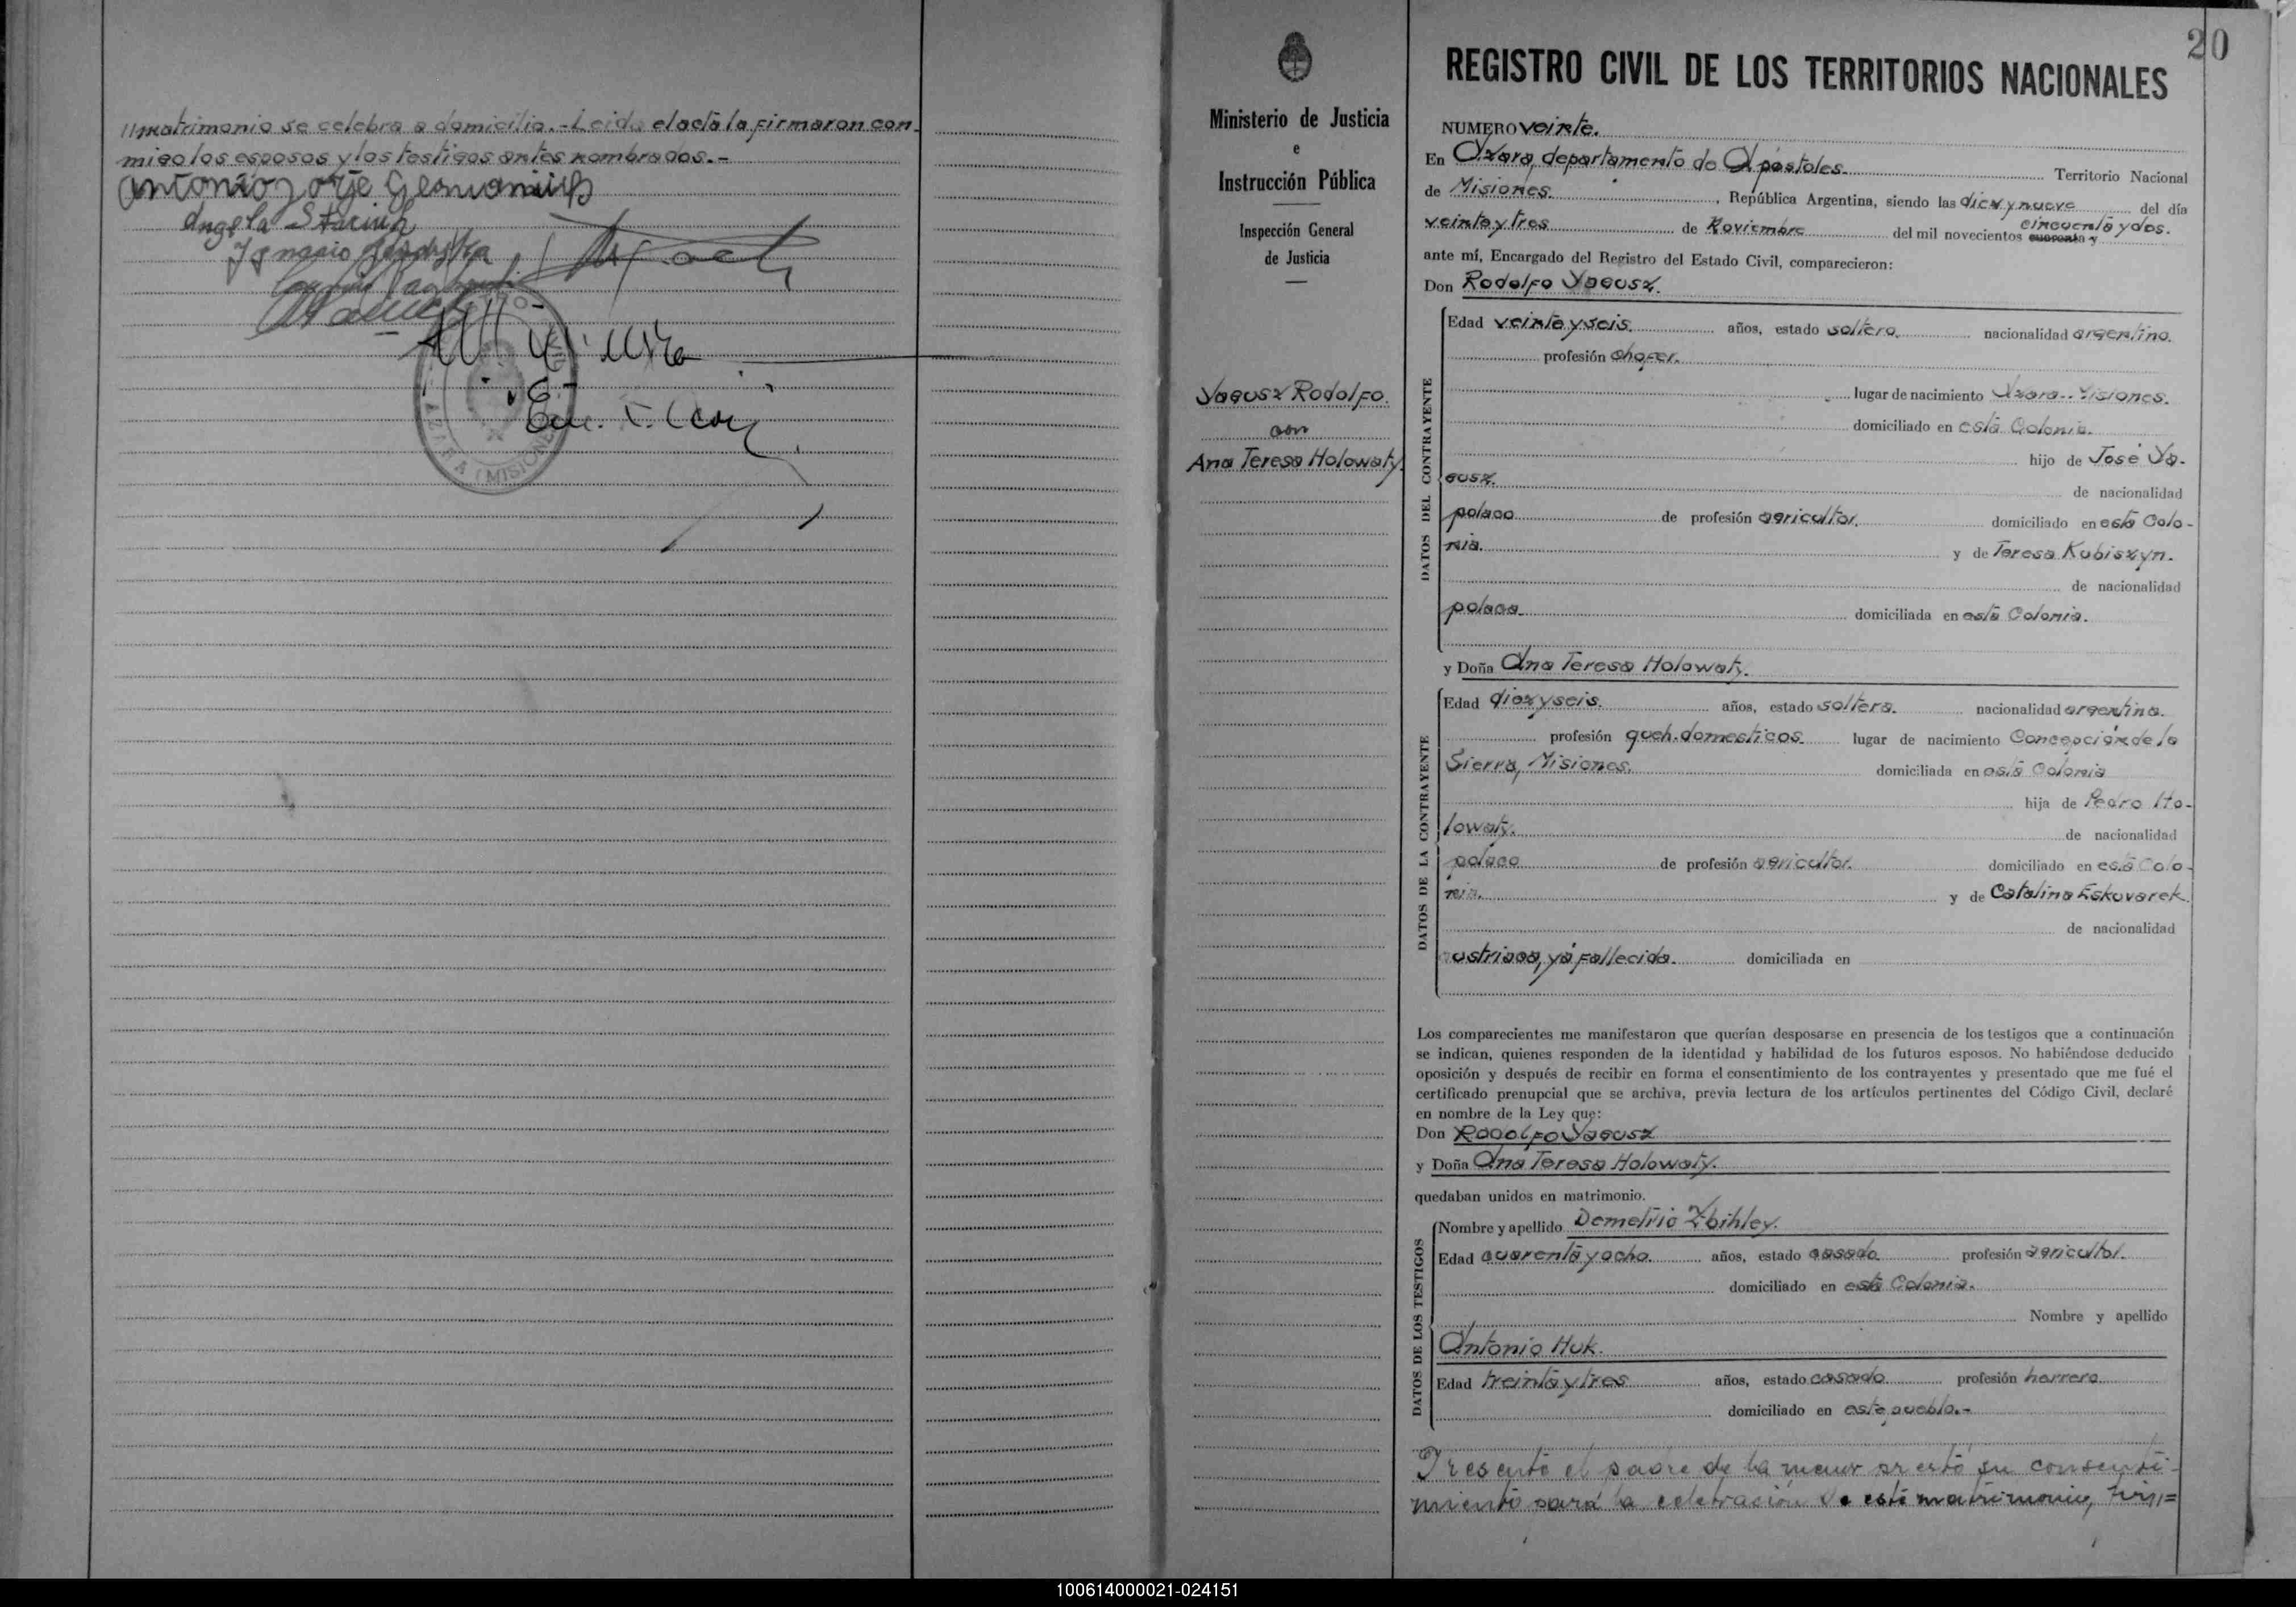 //matrimonio se celebra a domicilio.-Leida el acta la firmaron con-
migo los esposos y los testigos antes nombrados.-
Antonio Jorje
Angela
Ygnacio
MISIONES
20
REGISTRO CIVIL DE LOS TERRITORIOS NACIONALES
Ministerio de Justicia
e
Instrucción Pública
Inspección General
de Justicia
Yagusz Rodolfo.
con
Ana Teresa Holowaty.
NUMERO veinte.
En Azara, departamento de Apóstoles. Territorio Nacional
de Misiones. , República Argentina, siendo las diez y nueve del día
veinte y tres de Noviembre del mil novecientos cuarenta y cincuenta y dos.
ante mí, Encargado del Registro del Estado Civil, comparecieron:
Don Rodolfo Yagusz.
DATOS DEL CONTRAYENTE
Edad veinte y seis. años, estado soltero. nacionalidad argentino.
profesión chofer.
lugar de nacimiento Azara.-Misiones.
domiciliado en esta Colonia.
hijo de José Ya-
gusz.
de nacionalidad
polaco de profesión agricultor. domiciliado en esta Colo-
nia. y de Teresa Kubiszyn.
de nacionalidad
polaca domiciliada en esta Colonia.
y Doña Ana Teresa Holowaty.
DATOS DE LA CONTRAYENTE
Edad diez y seis. años, estado soltera. nacionalidad argentina.
profesión queh. domesticos lugar de nacimiento Concepción de la
Sierra, Misiones. domiciliada en esta Colonia
hija de Pedro Ho-
lowaty. de nacionalidad
polaco de profesión agricultor. domiciliado en esta Colo-
nia. y de Catalina Eskuvarek.
de nacionalidad
austriaca, yá fallecida. domiciliada en
Los comparecientes me manifestaron que querían desposarse en presencia de los testigos que a continuación
se indican, quienes responden de la identidad y habilidad de los futuros esposos. No habiéndose deducido
oposición y después de recibir en forma el consentimiento de los contrayentes y presentado que me fué el
certificado prenupcial que se archiva, previa lectura de los artículos pertinentes del Código Civil, declaré
en nombre de la Ley que:
Don Rodolfo Yagusz
y Doña Ana Teresa Holowaty.
quedaban unidos en matrimonio.
DATOS DE LOS TESTIGOS
Nombre y apellido Demetrio Zbihley.
Edad cuarenta y ocho. años, estado casado profesión agricultor.
domiciliado en esta Colonia.
Nombre y apellido
Antonio Huk.
Edad treinta y tres años, estado casado profesión herrero.
domiciliado en este pueblo.-
Presente el padre de la menor prestó su consenti-
miento para la celebración de este matrimonio,
100614000021-024151